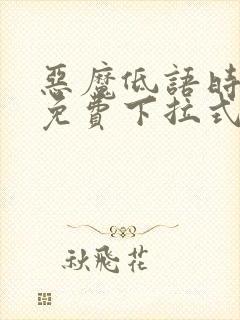 惡魔低語時
免費下拉式
秋飛花